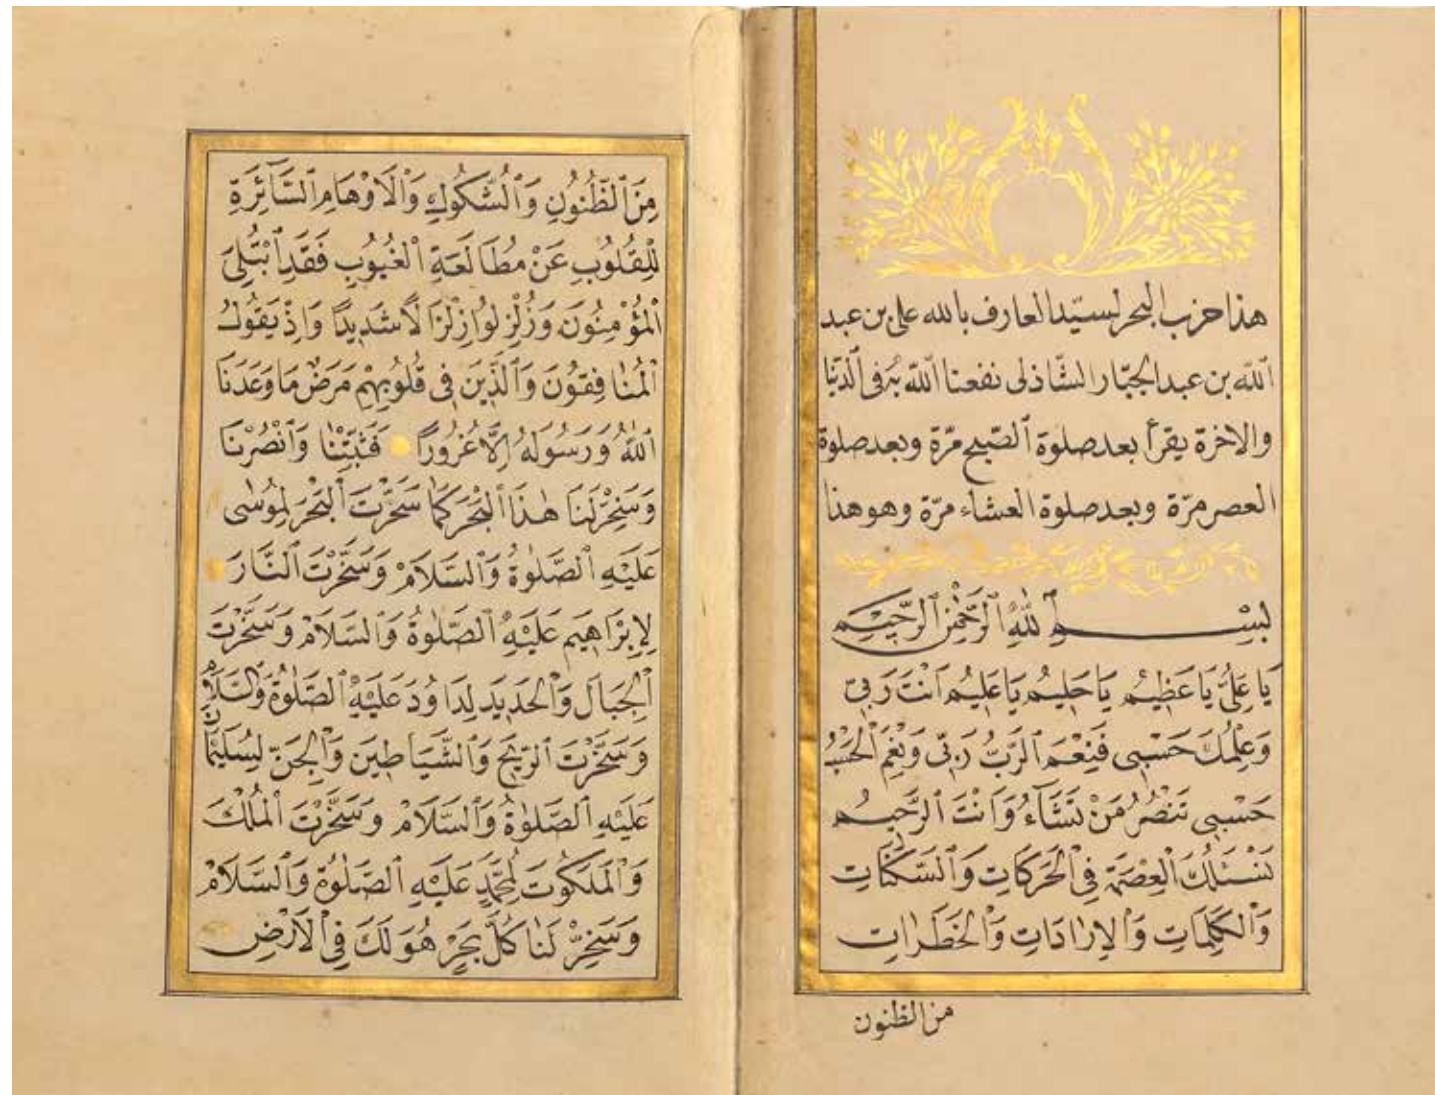 هذا حزب البحر لسيّد العارف بالله على بن عبد
اللّه بن عبد الجبّار الشّاذلى نفعنا اللّه به فى الدّنيا
والاخرة يقرأ بعد صلوة الصّبح مرّة وبعد صلوة
العصر مرّة وبعد صلوة العشاء مرّة وهو هذا
بِسْمِ ٱللّٰهِ ٱلرَّحْمٰنِ ٱلرَّحِيمِ
يَا عَلِىُّ يَا عَظِيمُ يَا حَلِيمُ يَا عَلِيمُ اَنْتَ رَبِّى
وَعِلْمُكَ حَسْبِى فَنِعْمَ ٱلرَّبُّ رَبِّى وَنِعْمَ ٱلْحَسْبُ
حَسْبِى تَنْصُرُ مَنْ تَشَٓاءُ وَاَنْتَ ٱلرَّحِيمُ
نَسْئَلُكَ ٱلْعِصْمَةَ فِى ٱلْحَرَكَاتِ وَٱلسَّكَنَاتِ
وَٱلْكَلِمَاتِ وَٱلْاِرَادَاتِ وَٱلْخَطَرَاتِ
من الظنون
مِنَ ٱلظُّنُونِ وَٱلشُّكُوكِ وَٱلْاَوْهَامِ ٱلسَّٓاتِرَةِ
لِلْقُلُوبِ عَنْ مُطَالَعَةِ ٱلْغُيُوبِ فَقَدِ ٱبْتُلِىَ
ٱلْمُؤْمِنُونَ وَزُلْزِلُوا زِلْزَالًا شَدِيدًا وَاِذْ يَقُولُ
ٱلْمُنَافِقُونَ وَٱلَّذِينَ فِى قُلُوبِهِمْ مَرَضٌ مَا وَعَدَنَا
ٱللّٰهُ وَرَسُولُهُ اِلَّا غُرُورًا فَثَبِّتْنَا وَٱنْصُرْنَا
وَسَخِّرْ لَنَا هٰذَا ٱلْبَحْرَ كَمَا سَخَّرْتَ ٱلْبَحْرَ لِمُوسٰى
عَلَيْهِ ٱلصَّلٰوةُ وَٱلسَّلَامْ وَسَخَّرْتَ ٱلنَّارَ
لِاِبْرَاهِيمَ عَلَيْهِ ٱلصَّلٰوةُ وَٱلسَّلَامْ وَسَخَّرْتَ
ٱلْجِبَالَ وَٱلْحَدِيدَ لِدَاوُدَ عَلَيْهِ ٱلصَّلٰوةُ وَٱلسَّلَامُ
وَسَخَّرْتَ ٱلرِّيحَ وَٱلشَّيَاطِينَ وَٱلْجِنَّ لِسُلَيْمَانَ
عَلَيْهِ ٱلصَّلٰوةُ وَٱلسَّلَامْ وَسَخَّرْتَ ٱلْمُلْكَ
وَٱلْمَلَكُوتَ لِمُحَمَّدٍ عَلَيْهِ ٱلصَّلٰوةُ وَٱلسَّلَامْ
وَسَخِّرْ لَنَا كُلَّ بَحْرٍ هُوَ لَكَ فِى ٱلْاَرْضِ